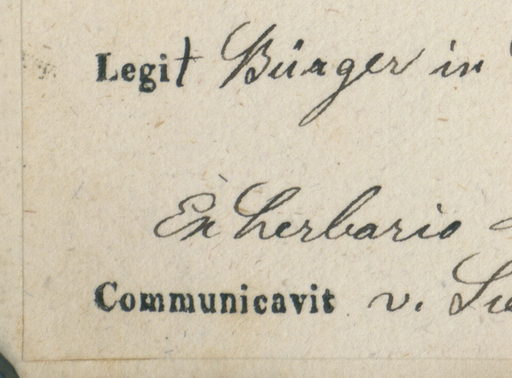 Legit Bürger in
Ex herbario
Communicavit v.